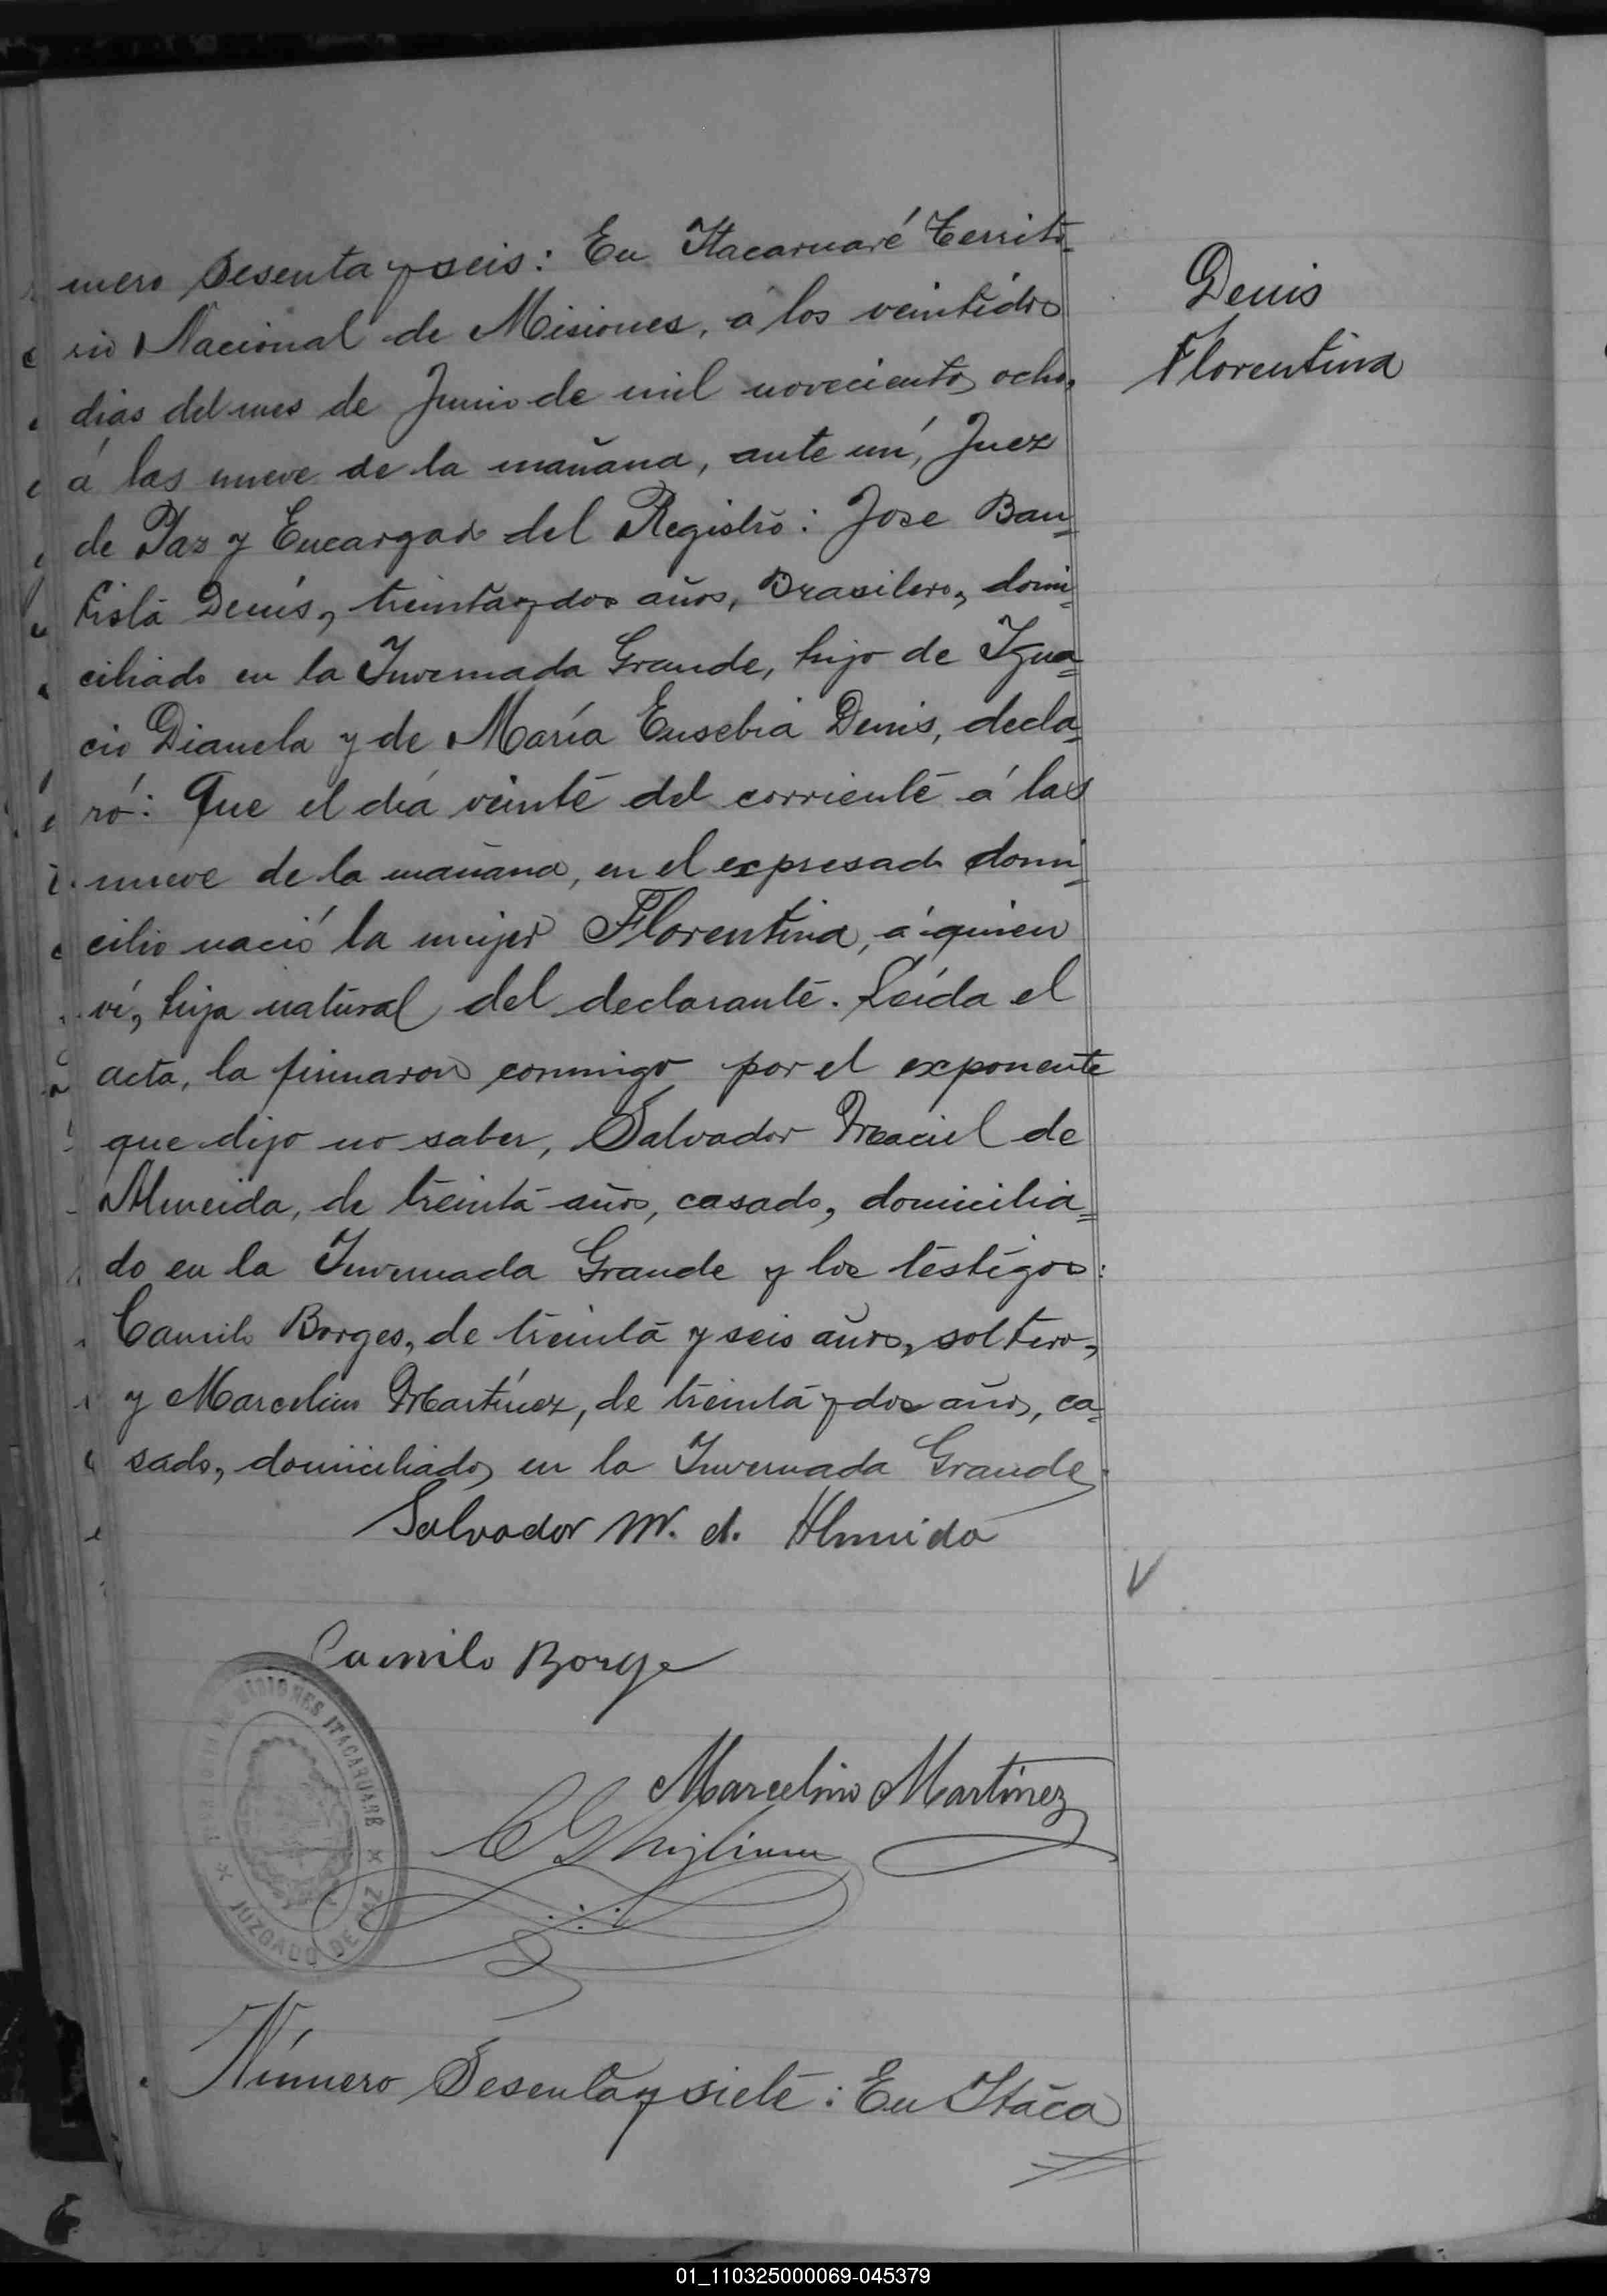 mero Sesenta y seis: En Itacaruaré Territo=
rio Nacional de Misiones, á los veintidos
dias del mes de Junio de mil novecientos ocho,
á las nueve de la mañana, ante mí, Juez
de Paz y Encargado del Registro: Jose Bau=
tista Denis, treinta y dos años, Brasilero, domi=
ciliado en la Invernada Grande, hijo de Igna=
cio Dianela y de María Eusebia Denis, decla=
ró: Que el día veinte del corriente á las
nueve de la mañana, en el expresado domi=
cilio nació la mujer Florentina, á quien
ví, hija natural del declarante. Leída el
acta, la firmaron conmigo por el exponente
que dijo no saber, Salvador Maciel de
Almeida, de treinta años, casado, domicilia=
do en la Invernada Grande y los testigos:
Camilo Borges, de treinta y seis años, soltero,
y Marcelino Martínez, de treinta y dos años, ca=
sado, domiciliados en la Invernada Grande.
Salvador M. d. Almeida
Camilo Borge
Marcelino Martinez
MISIONES ITACARUARÉ
JUZGADO DE PAZ
Número Sesenta y siete: En Itaca
Denis
Florentina
01_110325000069-045379